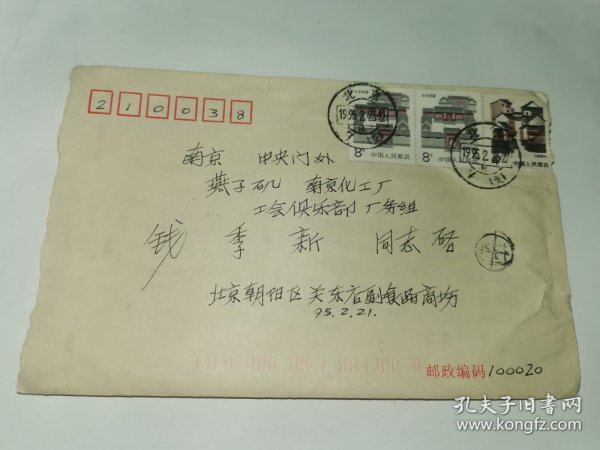 210038
北京
1995.2.23
8分 中国人民邮政
8分 中国人民邮政
中国人民邮政
北京
1995.2.23
南京 中央门外
燕子矶 南京化工厂
工会俱乐部 厂务组
钱季新 同志 启
北京朝阳区关东店副食品商场
95.2.21.
邮政编码100020
孔夫子旧书网
www.kongfz.com